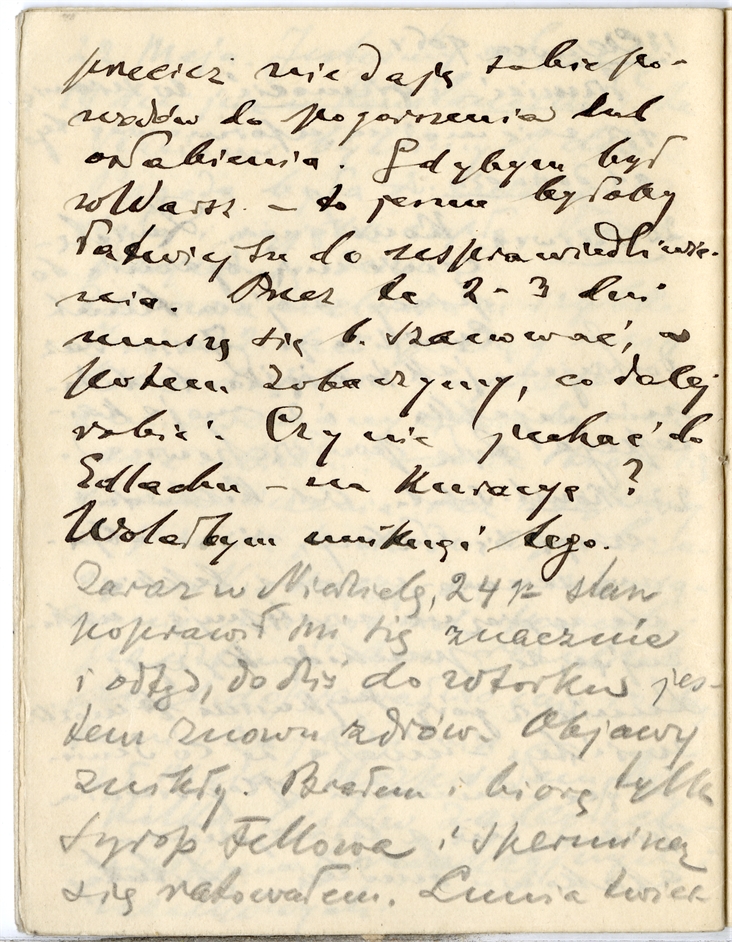 przecież nie dają sobie po-
wodów do pogorszenia lub
osłabienia. Gdybym był
w Warsz. – to jeszcze byłoby
łatwiejsze do usprawiedliwie-
nia. Przez te 2 – 3 dni
muszę się b. szanować, a
potem zobaczymy, co dalej
robić. Czy nie jechać do
Edlachu – na kuracyę?
Wolałbym uniknąć tego.
Zaraz w Niedzielę, 24 stan
poprawił mi się znacznie
i odtąd, do dziś do wtorku jes-
tem znowu zdrów. Objawy
znikły. Brałem i biorę tylko
Syrop Fellowa i Sperminą
się ratowałem. Lunia twier-